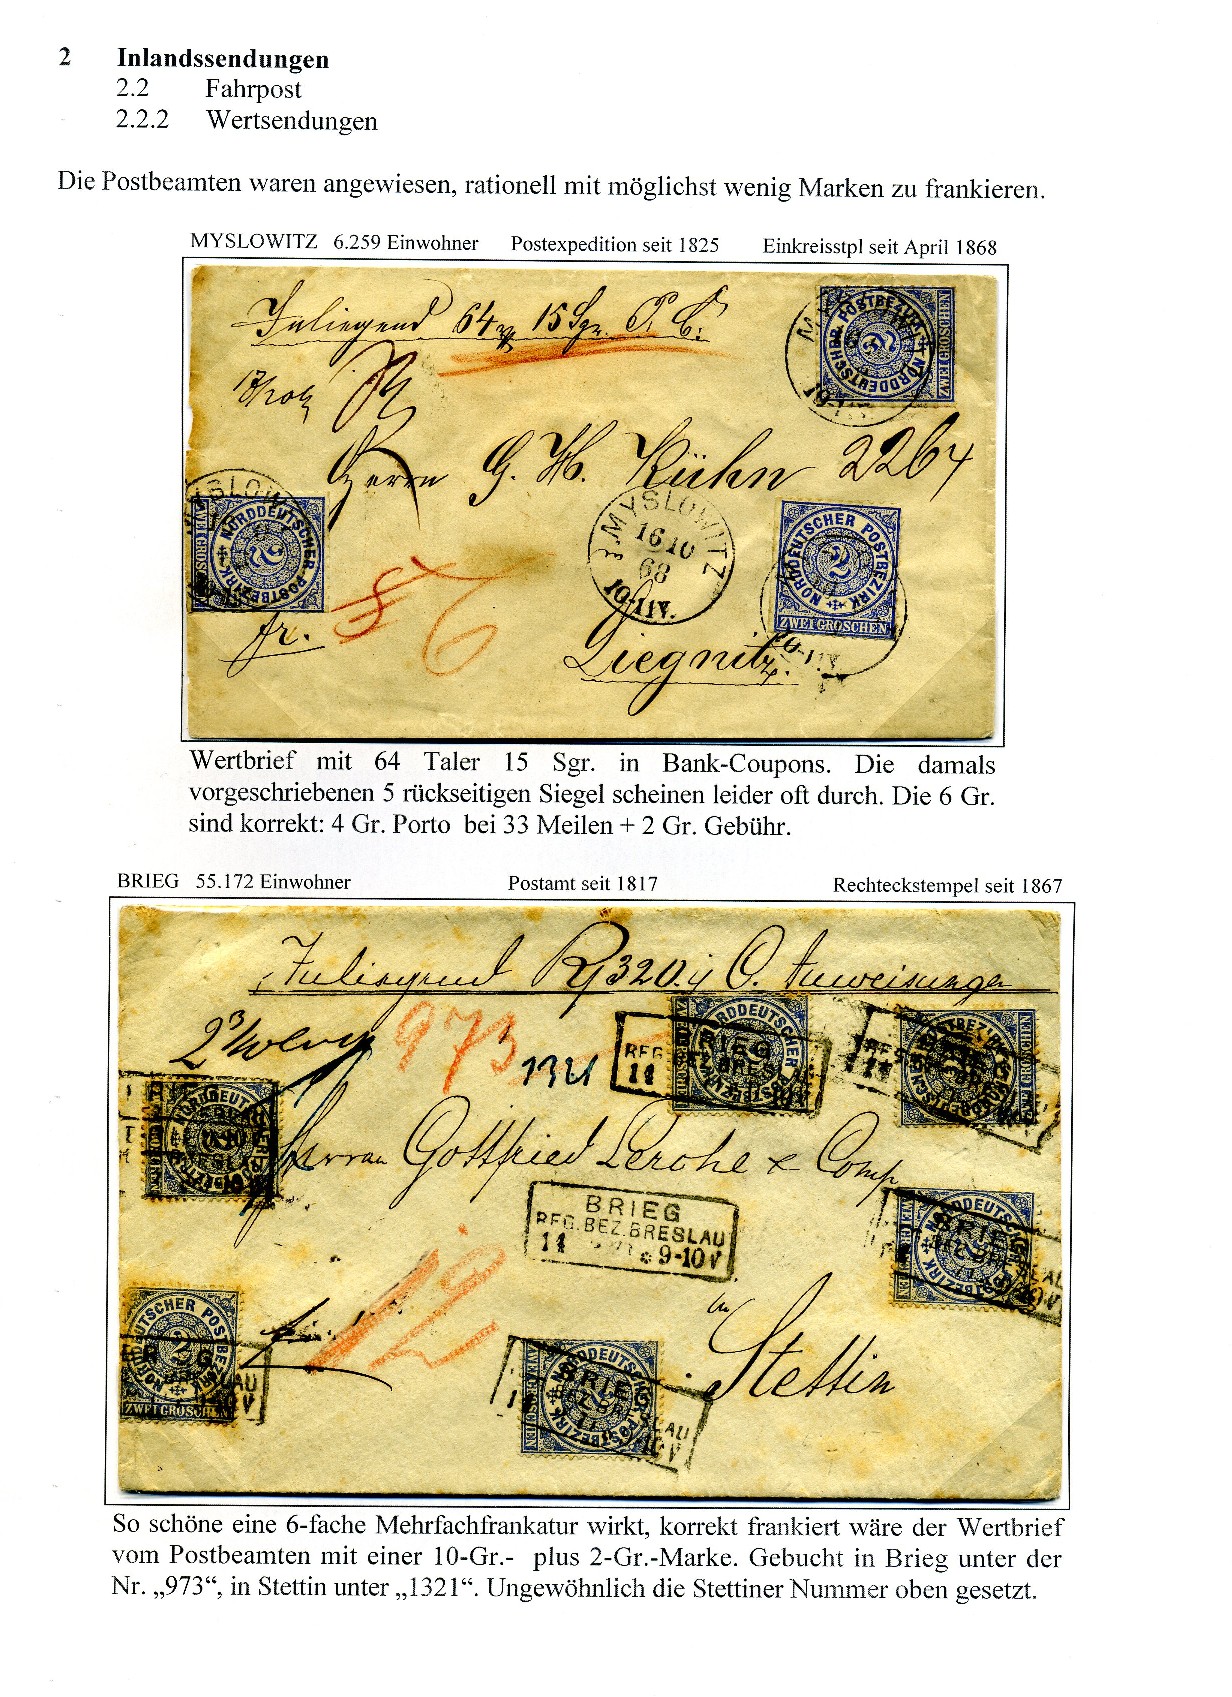 2 Inlandssendungen
2.2 Fahrpost
2.2.2 Wertsendungen
Die Postbeamten waren angewiesen, rationell mit möglichst wenig Marken zu frankieren.
MYSLOWITZ 6.259 Einwohner Postexpedition seit 1825 Einkreisstpl seit April 1868
Inliegend 64 15 Sgr.
NORDDEUTSCHER POSTBEZIRK
2
Herrn G. H. Kühn 2264
MYSLOWITZ
16 10
68
10-11V.
NORDDEUTSCHER POSTBEZIRK
ZWEI GROSCHEN
NORDDEUTSCHER POSTBEZIRK
2
ZWEI GROSCHEN
fr. 6
Liegnitz.
Wertbrief mit 64 Taler 15 Sgr. in Bank-Coupons. Die damals
vorgeschriebenen 5 rückseitigen Siegel scheinen leider oft durch. Die 6 Gr.
sind korrekt: 4 Gr. Porto bei 33 Meilen + 2 Gr. Gebühr.
BRIEG 55.172 Einwohner Postamt seit 1817 Rechteckstempel seit 1867
Inliegend 320 Anweisungen
973 1321
Herren Gottfried Lerche & Comp
BRIEG
REG.BEZ.BRESLAU
11 9-10V
12
in
Stettin
NORDDEUTSCHER POSTBEZIRK
2
ZWEI GROSCHEN
So schöne eine 6-fache Mehrfachfrankatur wirkt, korrekt frankiert wäre der Wertbrief
vom Postbeamten mit einer 10-Gr.- plus 2-Gr.-Marke. Gebucht in Brieg unter der
Nr. „973“, in Stettin unter „1321“. Ungewöhnlich die Stettiner Nummer oben gesetzt.